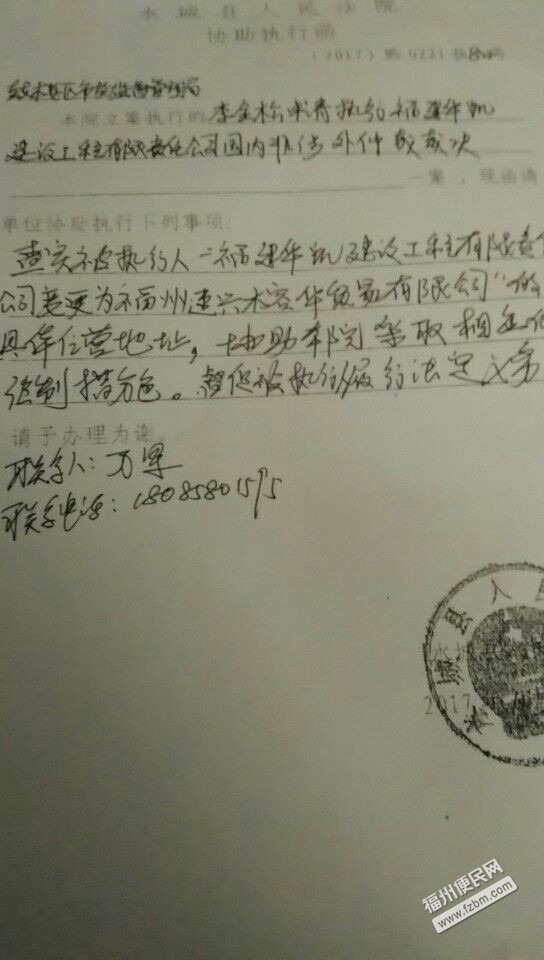 水城县人民法院
协助执行函
(2017)黔0221执 号
管理局
本院立案执行的李金松申请执行福建华凯
建设工程有限责任公司国内非涉外仲裁裁决
一案,现函请
单位协助执行下列事项:
查实被执行人“福建华凯建设工程有限责任
公司变更为福州连兴木容华贸易有限公司”的
具体住营地址,协助本院采取相应的
强制措施。督促被执行人履行法定义务
请予办理为谢
联系人:万军
联系电话:18085801595
城县人民
水城
2017
福州便民网
www.fzbm.com